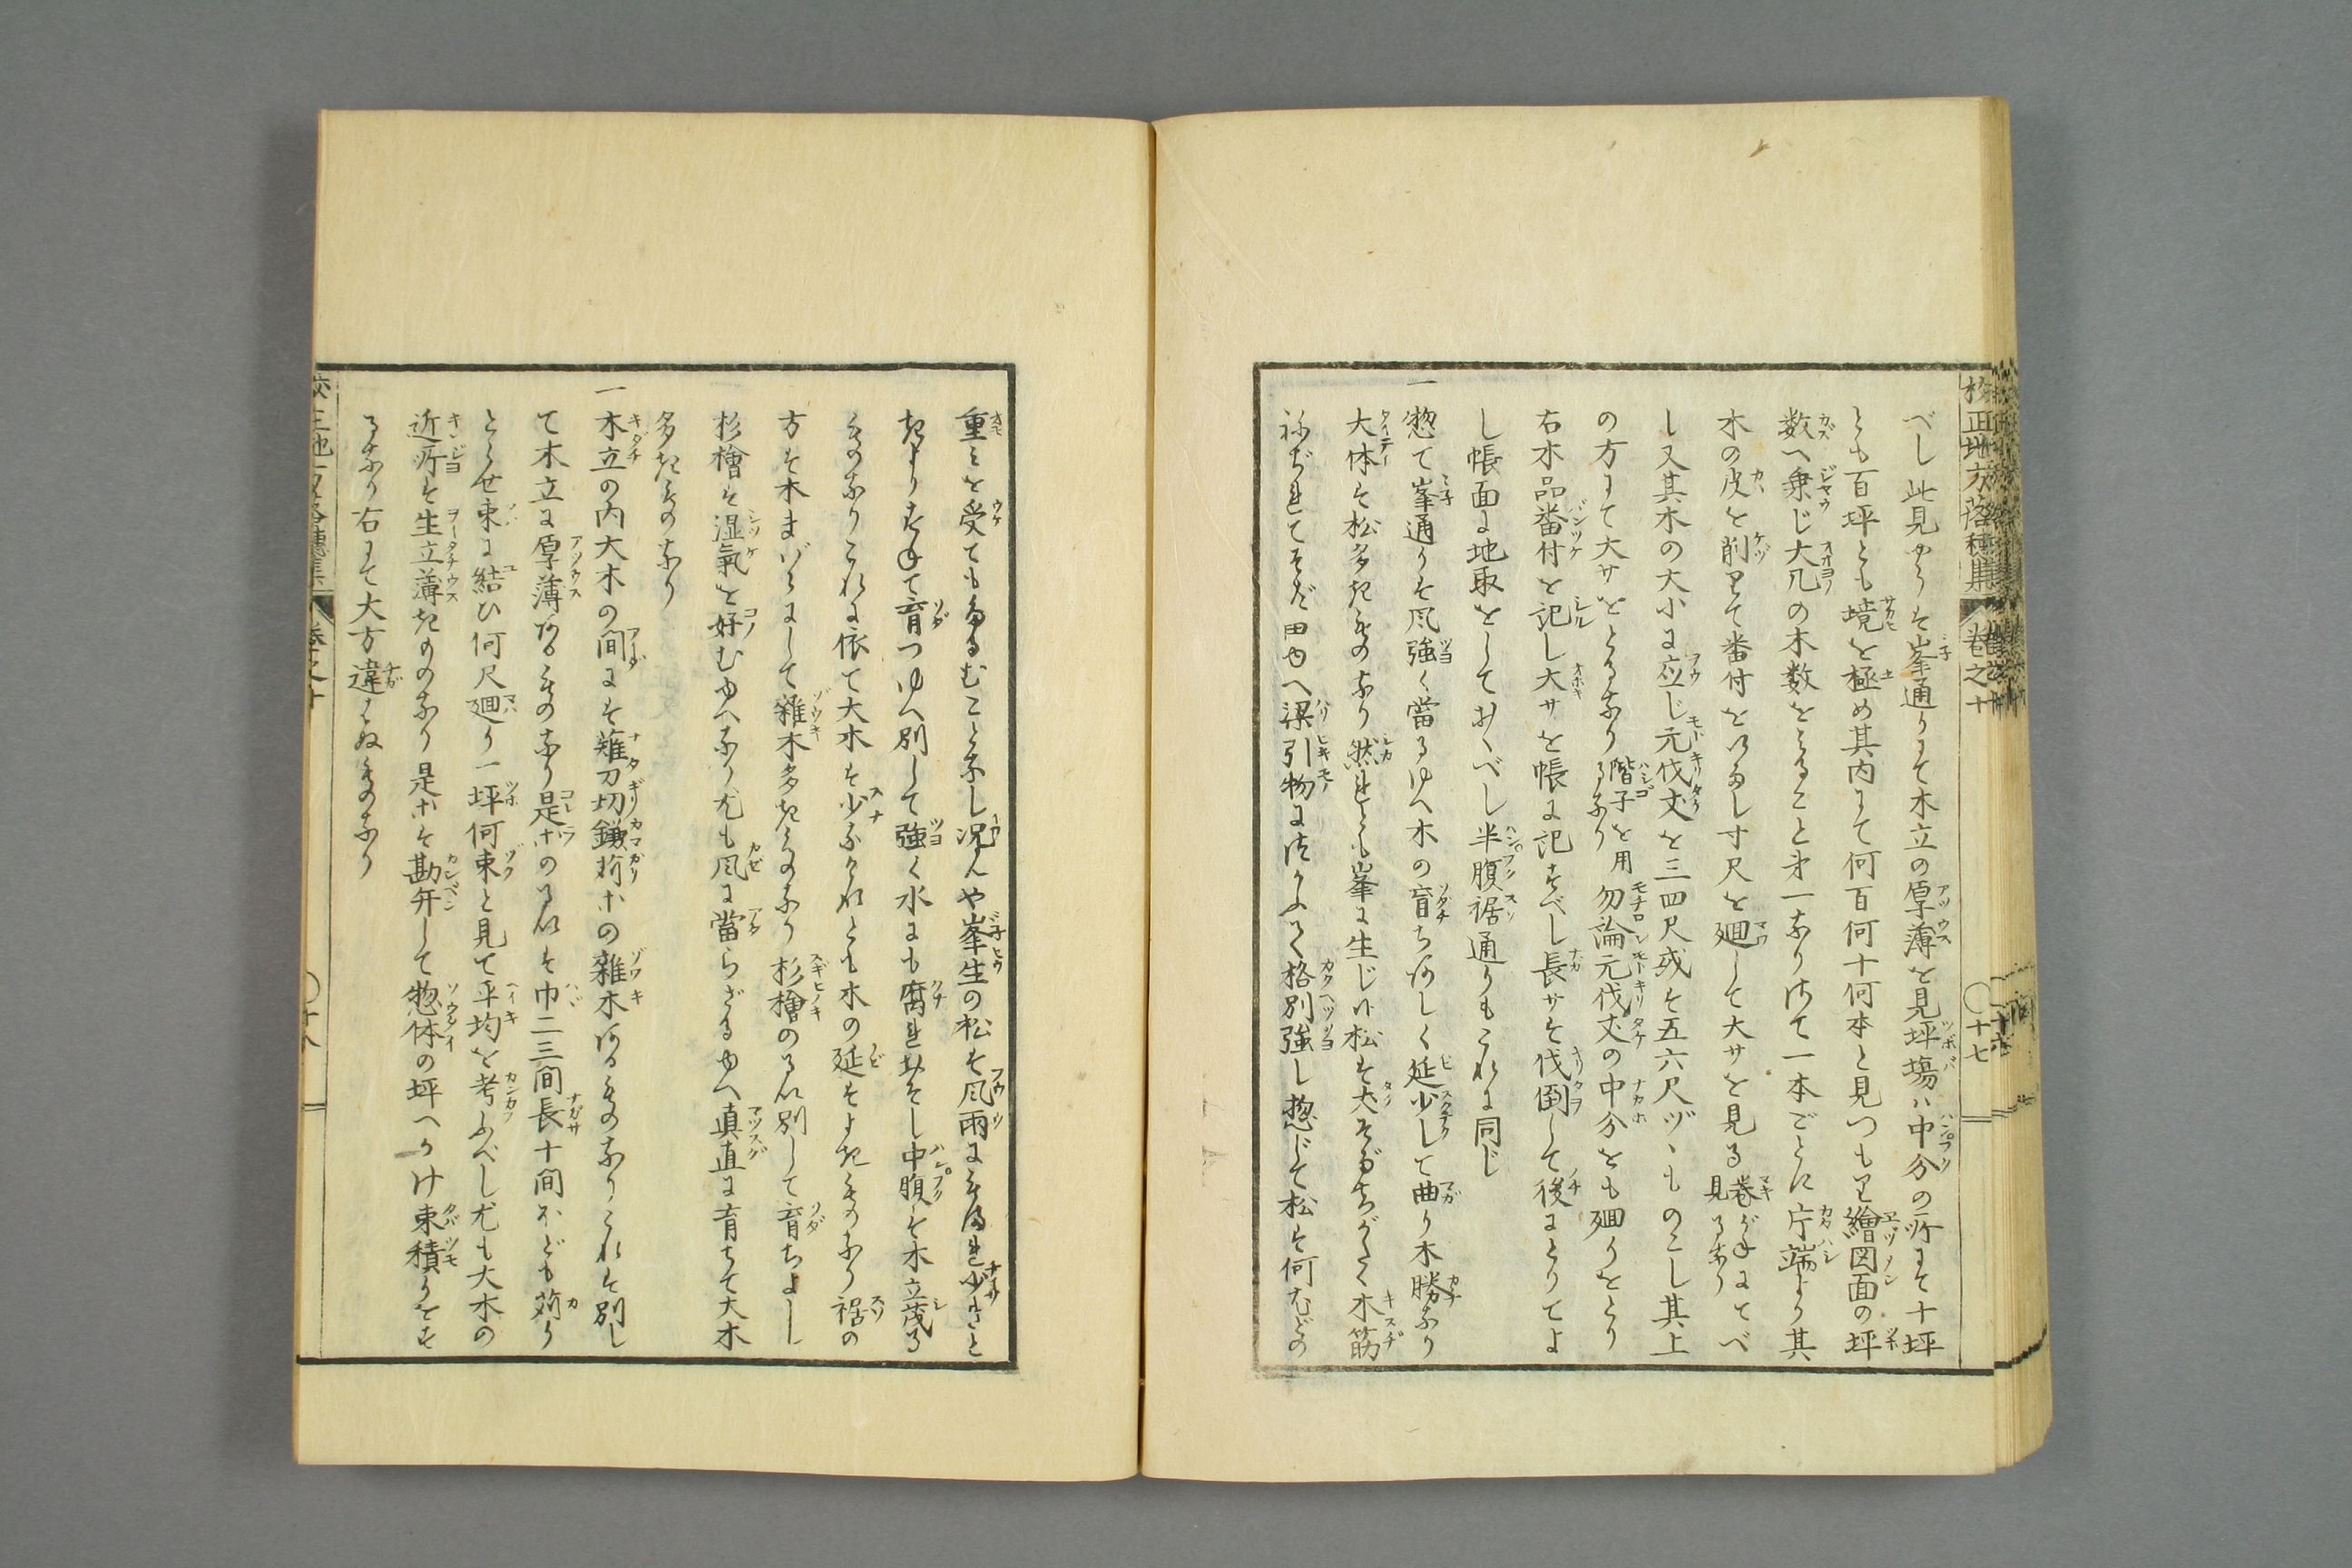 校正地方落穂集　巻之十　〇十七
べし此見やうは峯通りにて木立の厚薄を見坪塲ハ中分の所にて十坪
とも百坪とも境を極め其内にて何百何十何本と見つもり繪図面の坪
数へ乗じ大凡の木数をとること第一なりさて一本ごとに片端より其
木の皮を削りて番付をいたし寸尺を廻して大サを見る巻がねにてべ見るなり
し又其木の大小に應じ元伐丈を三四尺或は五六尺ヅヽものこし其上
の方にて大サをとるなり階子を用るなり勿論元伐丈の中分をも廻りをとり
右木品番付を記し大サを帳に記すべし長サは伐倒して後にとりてよ
し帳面に地取をしておくべし半腹裾通りもこれに同じ
一惣て峯通りは風強く當るゆへ木の育ち悪しく延少して曲り木勝なり
大体は松多きものなり然れども峯に生じい松は丈そだちがたく木筋
ねぢれてそだ田ゆへ梁引物につかふて格別強し惣じて松は何ほどの
重みを受てもたるむことなし况んや峯生の松は風雨にもまれ少きと
きよりすねて育つゆへ別して強く水にも腐れおそし中腹は木立茂る
ものなりこれに依て大木は少なけれとも木の延はよきものなり裾の
方は木まばらにして雑木多きものなり杉檜のるい別して育ちよし
杉檜は湿氣を好むゆへなり尤も風に當らざるゆへ真直に育ちて大木
多きものなり
一木立の内大木の間には薙刀切鎌苅ホの雑木あるものなりこれは別し
て木立に厚薄あるものなり是ホのるいは巾二三間長十間ほども苅り
とらせ束に結ひ何尺廻り一坪何束と見て平均を考ふべし尤も大木の
近所は生立薄きものなり是ホは勘弁して惣体の坪へかけ束積りをす
るなり右にて大方違はぬものなり
校正地方落穂集　巻之十　〇十八